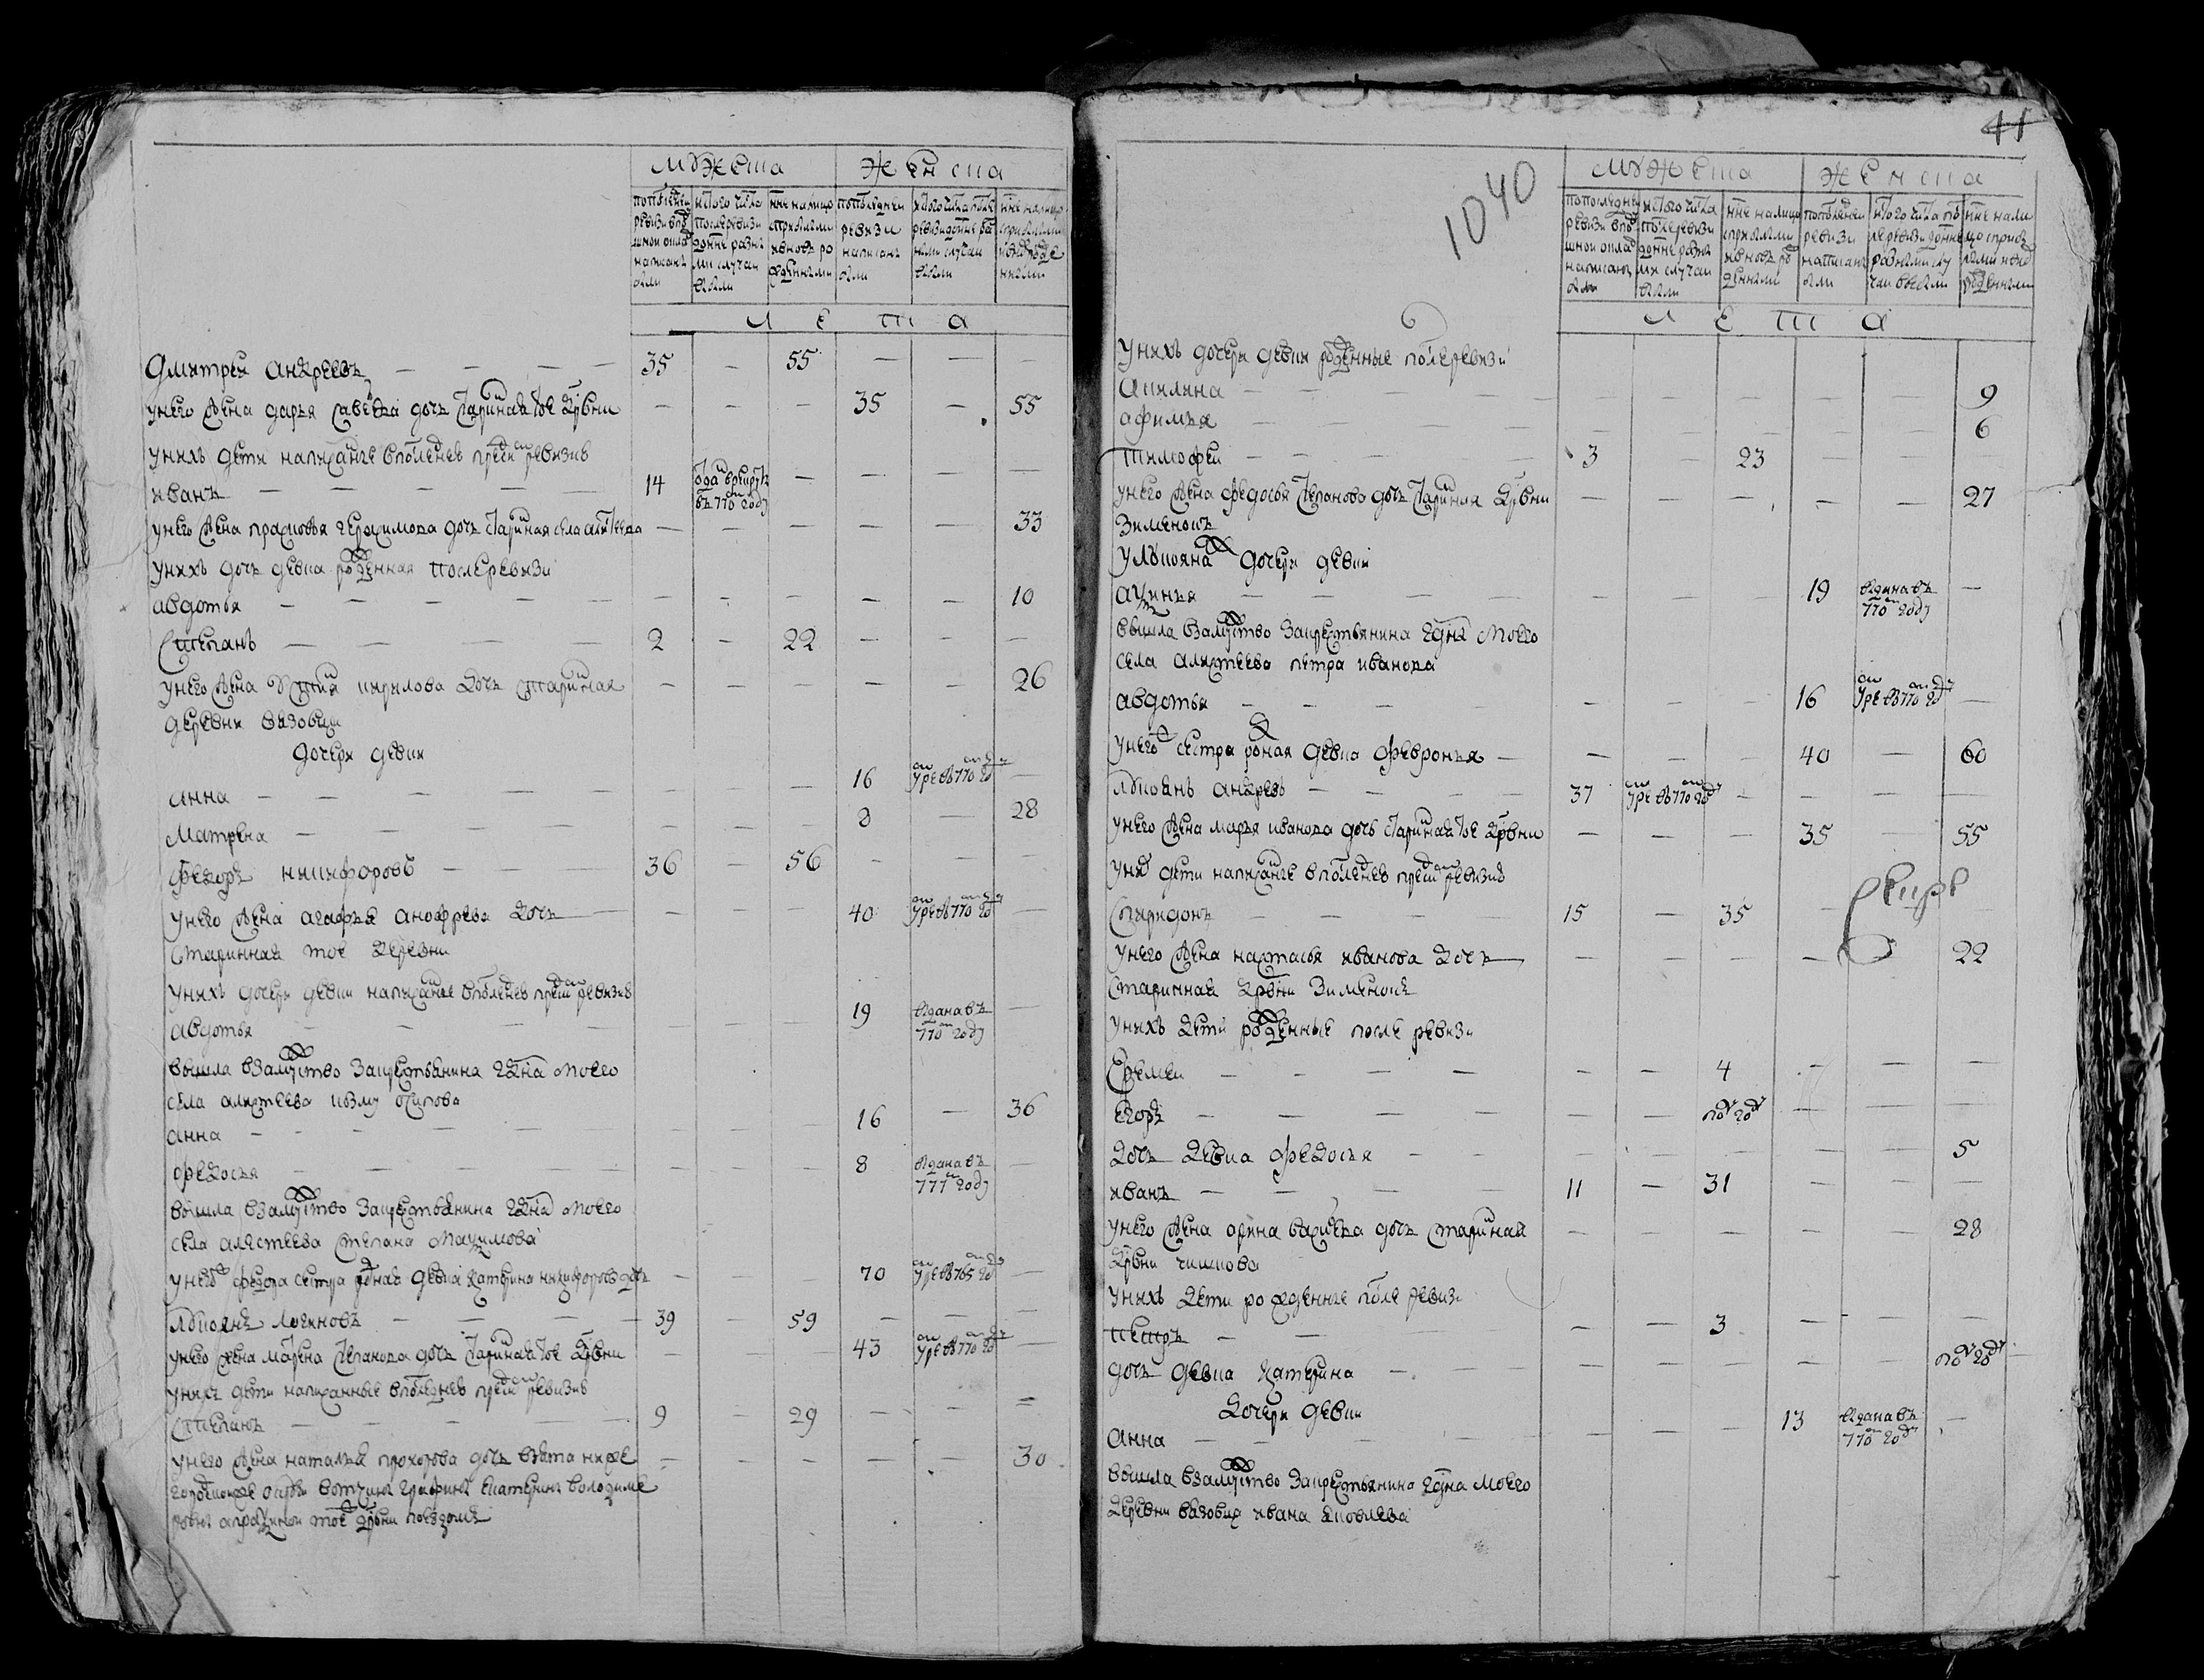 мужеска женска
по последней ревизи в подушной оклад написаны были
ис того числа после ревизи до ныне разными случаи выбыли
ныне на лицо с прибылыми и вновь рожденными
по последней ревизи написаны были
ис того числа после ревизи до ныне разными случаи выбыли
ныне на лицо с прибылыми и вновь рожденными
лета
Дмитрей андреевъ — 35 — 55 — — —
у него жена дарья савельева дочь старинная тое дрвни — — — 35 — 55
у них дети написанные в последней пред сим ревизие
иванъ — 14 отдан в рекруты въ 770м году — — — —
у него жена прасковья герасимова дочь старинная села — — — — — 33
у нихъ дочь девка рожденная после ревизи
авдотья — — — — — — 10
Степанъ — 2 — 22 — — —
у него жена кирилова дочь старинная — — — — — 26
деревни вязовки
дочери девки
анна — — — — 16 умре въ 770 м году —
Матрена — — — — 8 — 28
федоръ никифоровъ — 36 — 56 — — —
у него жена агафья анофрева дочь — — — 40 умре въ 770 м году —
старинная тое деревни
у нихъ дочери девки написанные в последней пред сим ревизие
авдотья — — — — 19 выдана въ 770м году —
вышла в замужство за крестьянина г̃дна моего
села алистеева осипова
анна — — — — 16 — 36
федосья — — — — 8 выдана въ 777м году —
вышла в замужство за крестьянина г̃дна моего
села алистеева степана
у него федора сестра родная девка катерина никифорова дочь — 70 умре въ 765 м году —
лукоянъ логиновъ — 39 — 59 — — —
у него жена марена степанова дочь старинная тое дрвни — — — 43 умре въ 770 м году —
у них дети написанные в последней пред сим ревизие
Степанъ — 9 — 29 — — —
у него жена наталья прохорова дочь взята ниже — — — — — 30
городской округи вотчины графини катерины володиме
ровны
41
1040
мужеска женска
по последней ревизи в подушной оклад написаны были
ис того числа после ревизи до ныне разными случаи выбыли
ныне на лицо с прибылыми и вновь рожденными
по последней ревизи написаны были
ис того числа после ревизи до ныне разными случаи выбыли
ныне на лицо с прибылыми и вновь рожденными
лета
у нихъ дочери девки рожденные после ревизи
акилина — — — — — — 9
афимья — — — — — — 6
тимофей — 3 — 23 — — —
у него жена федосья степанова дочь старинная дрвни — — — — — 27
зименокъ
у лукояна дочери девки
— — — — 19 выдана въ 770м году —
вышла в замужство за крестьянина г̃дна моего
села алистеева петра иванова
авдотья — — — — 16 умре въ 770 м году —
у него сестра родная девка февронья — — — — 40 — 60
лукоянъ андревъ — 37 умре въ 770 м году — — — —
у него жена марья иванова дочь старинная тое дрвни — — — 35 — 55
у них дети написанные в последней пред сим ревизие
спиридонъ — 15 — 35 — — —
у него жена настасья иванова дочь — — — — — 22
старинная дрвни зименокъ
у нихъ дети рожденные после ревизи
Еремеи — — — 4 — — —
егоръ — — — полгода — — —
дочь девка федосья — — — — — — 5
иванъ — 11 — 31 — — —
у него жена орина васильева дочь старинная — — — — — 28
дрвни
у нихъ дети рожденные после ревизи
петръ — — — 3 — — —
дочь девка катерина — — — — — — полгода
дочери девки
анна — — — — 13 выдана въ 770м году —
вышла в замужство за крестьянина г̃дна моего
деревни вязовки ивана яковлева